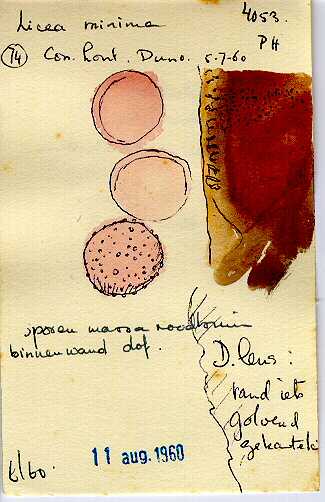 Licea minima
4053.
PH
(74) Con. Hort. Duno. 5-7-60
sporen massa roodbruin
binnenwand dof.
D. lens:
rand iets
golvend
gekarteld
6/60.
11 aug. 1960